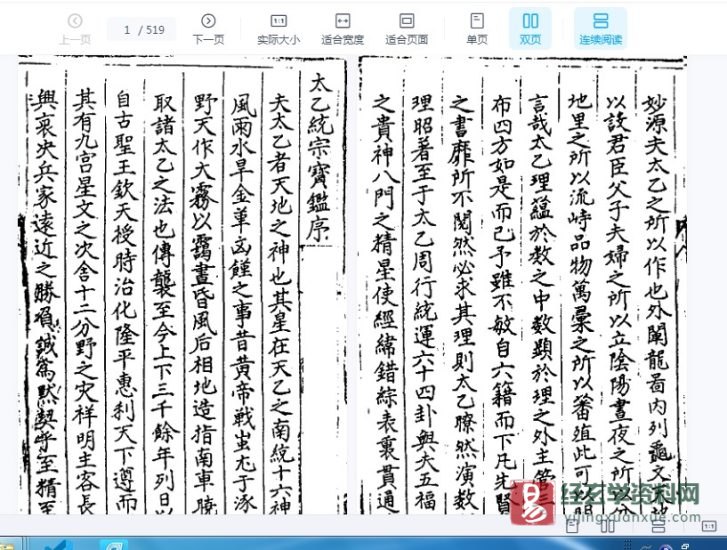 上一页
1 / 519
下一页
实际大小
适合宽度
适合页面
单页
双页
连续阅读
太乙統宗寶鑑序
夫太乙者天地之神也其星在天乙之南統十六神
風雨水旱金革凶饉之事昔黄帝戰蚩尤于涿
野天作大霧以靄晝昏風后相地造指南車
取諸太乙之法也傳襲至今上下三千餘年列日以
自古聖王欽天授時治化隆平惠利天下遵而
其有九宫星文之次舍十二分野之灾祥明主客長
興衰决兵家遠近之勝負誠為黙契乎至精至
妙源夫太乙之所以作也外闡龍啚内列龜文天地
以設君臣父子夫婦之所以立陰陽晝夜之所以分
地里之所以流峙品物萬彙之所以蕃殖此可以
言哉太乙理蘊於数之中数顯於理之外主管三
布四方如是而已予雖不敏自六籍而下凡先賢
之書靡所不閱然必求其理則太乙瞭然演数
理昭著至于太乙周行統運六十四卦與夫五福
之貴神八門之精星使經緯錯綜表裏貫通
易玄学资料网
yijingxuanxue.com